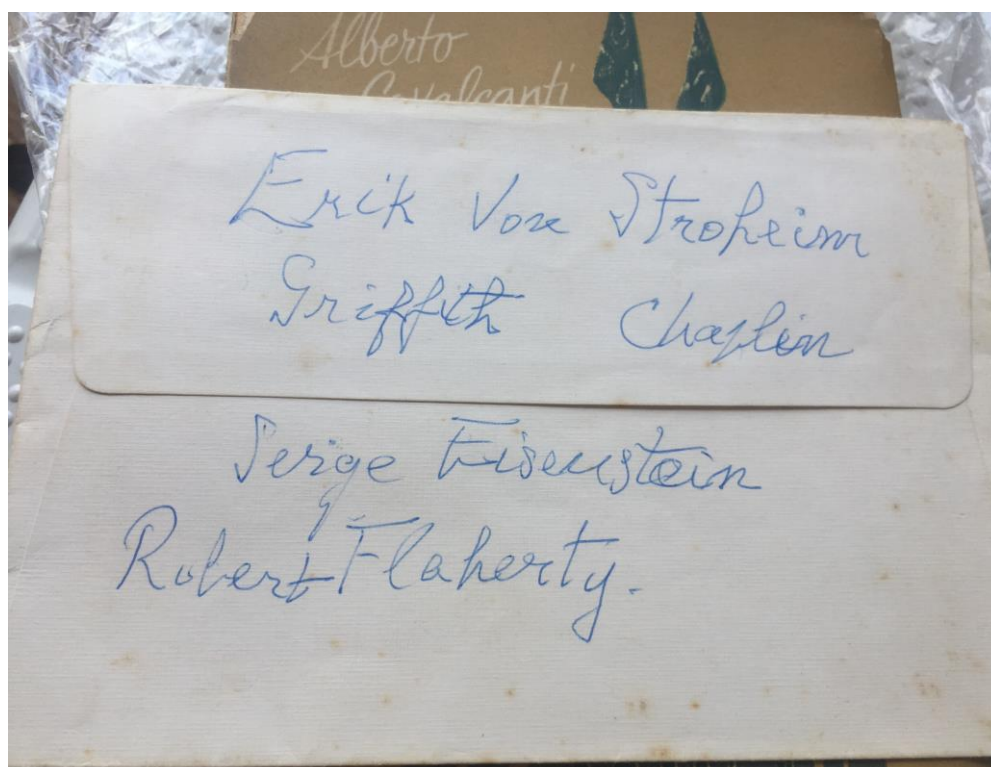 Alberto
Cavalcanti
Erik Von Stroheim
Griffith Chaplin
Serge Eisenstein
Robert Flaherty.